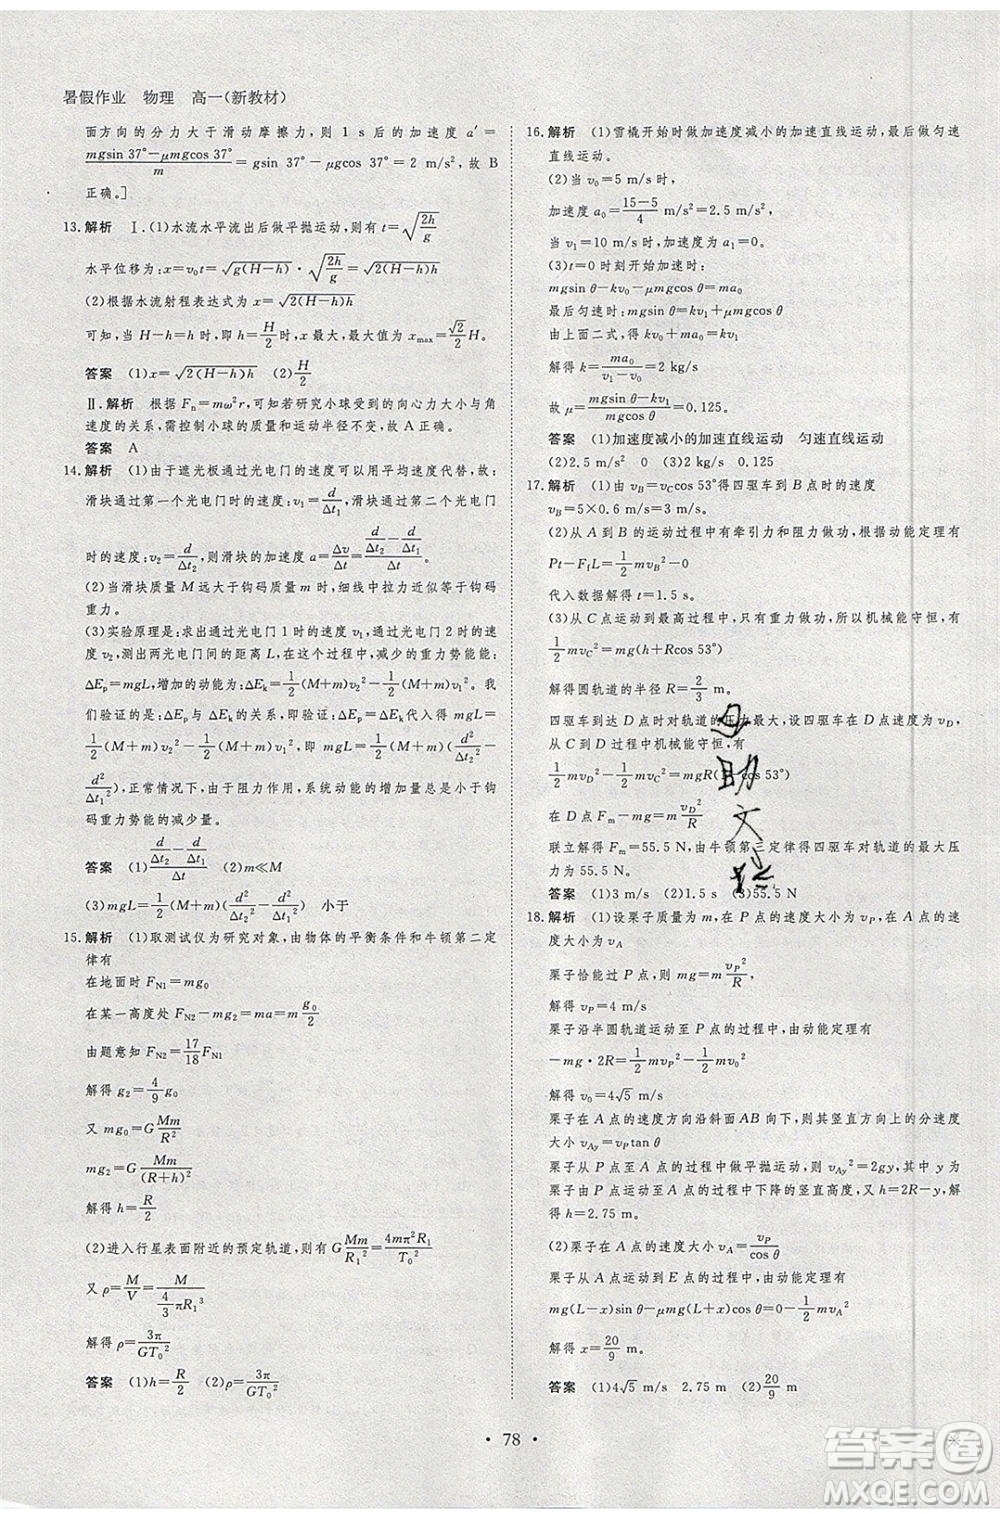 暑假作业 物理 高一(新教材)
面方向的分力大于滑动摩擦力,则 1 s 后的加速度 a′=
(mgsin 37°-μmgcos 37°)/m=gsin 37°-μgcos 37°=2 m/s²,故 B
正确。]
13.解析 Ⅰ.(1)水流水平流出后做平抛运动,则有 t=√(2h/g)
水平位移为:x=v₀t=√(g(H-h))·√(2h/g)=√(2(H-h)h)
(2)根据水流射程表达式为 x=√(2(H-h)h)
可知,当 H-h=h 时,即 h=H/2时,x 最大,最大值为 x_max=(√2/2)H。
答案 (1)x=√(2(H-h)h) (2)H/2
Ⅱ.解析 根据 Fₙ=mω²r,可知若研究小球受到的向心力大小与角
速度的关系,需控制小球的质量和运动半径不变,故 A 正确。
答案 A
14.解析 (1)由于遮光板通过光电门的速度可以用平均速度代替,故:
滑块通过第一个光电门时的速度:v₁=d/Δt₁,滑块通过第二个光电门
时的速度:v₂=d/Δt₂,则滑块的加速度 a=Δv/Δt=(d/Δt₂-d/Δt₁)/Δt。
(2)当滑块质量 M 远大于钩码质量 m 时,细线中拉力近似等于钩码
重力。
(3)实验原理是:求出通过光电门 1 时的速度 v₁,通过光电门 2 时的
速度 v₂,测出两光电门间的距离 L,在这个过程中,减少的重力势能能:
ΔEp=mgL,增加的动能为:ΔEk=1/2(M+m)v₂²-1/2(M+m)v₁²。我
们验证的是:ΔEp 与 ΔEk 的关系,即验证:ΔEp=ΔEk代入得 mgL=
1/2(M+m)v₂²-1/2(M+m)v₁²,即为:mgL=1/2(M+m)(d²/Δt₂²-
d²/Δt₁²),正常情况下,由于阻力作用,系统动能的增加量要小于钩
码重力势能的减少量。
答案 (1)(d/Δt₂-d/Δt₁)/Δt (2)m≪M
(3)mgL=1/2(M+m)(d²/Δt₂²-d²/Δt₁²) 小于
15.解析 (1)取测试仪为研究对象,由物体的平衡条件和牛顿第二定
律有
在地面时 F_N1=mg₀
在某一高度处 F_N2-mg₂=ma=m g₀/2
由题意知 F_N2=17/18 F_N1
解得 g₂=4/9 g₀
又 mg₀=G Mm/R²
mg₂=G Mm/(R+h)²
解得 h=R/2
(2)进入行星表面附近的预定轨道,则有 G Mm/R₁²=4mπ²R₁/T₀²
又 ρ=M/V=M/(4/3 πR₁³)
解得 ρ=3π/GT₀²
答案 (1)h=R/2 (2)ρ=3π/GT₀²
16.解析 (1)雪橇开始时做加速度减小的加速直线运动,最后做匀速
直线运动。
(2)当 v₀=5 m/s 时,
加速度 a₀=(15-5)/4 m/s²=2.5 m/s²,
当 v₁=10 m/s 时,加速度 a₁=0。
(3)t=0 时刻开始加速时:
mgsin θ-kv₀-μmgcos θ=ma₀
最后匀速时:mgsin θ=kv₁+μmgcos θ
由上面二式,得 kv₀+ma₀=kv₁
解得 k=ma₀/(v₁-v₀)=2 kg/s
故 μ=(mgsin θ-kv₁)/(mgcos θ)=0.125。
答案 (1)加速度减小的加速直线运动 匀速直线运动
(2)2.5 m/s² 0 (3)2 kg/s 0.125
17.解析 (1)由 v_B=v_Ccos 53°得四驱车到 B 点时的速度
v_B=5×0.6 m/s=3 m/s。
(2)从 A 到 B 的运动过程中有牵引力和阻力做功,根据动能定理有
Pt-F_fL=1/2 mv_B²-0
代入数据解得 t=1.5 s。
(3)从 C 点运动到最高过程中,由于只有重力做功,所以机械能守恒,有
1/2 mv_C²=mg(h+Rcos 53°)
解得圆轨道的半径 R=2/3 m。
四驱车到达 D 点时对轨道的压力最大,设四驱车在 D 点速度为 v_D,
从 C 到 D 过程中机械能守恒,有
1/2 mv_D²-1/2 mv_C²=mgR(1-cos 53°)
在 D 点 F_m-mg=m v_D²/R
联立解得 F_m=55.5 N,由牛顿第三定律得四驱车对轨道的最大压
力为 55.5 N。
答案 (1)3 m/s (2)1.5 s (3)55.5 N
18.解析 (1)设栗子质量为 m,在 P 点的速度大小为 v_P,在 A 点的速
度大小为 v_A
栗子恰能过 P 点,则 mg=m v_P²/R
解得 v_P=4 m/s
栗子沿半圆轨道运动至 P 点的过程中,由动能定理有
-mg·2R=1/2 mv_P²-1/2 mv₀²
解得 v₀=4√5 m/s
栗子在 A 点的速度方向沿斜面 AB 向下,则其竖直方向上的分速度
大小 v_Ay=v_Ptan θ
栗子从 P 点至 A 点的过程中做平抛运动,则 v_Ay²=2gy,其中 y 为
栗子从 P 点运动至 A 点的过程中下降的竖直高度,又 h=2R-y,解
得 h=2.75 m。
(2)栗子在 A 点的速度大小 v_A=v_P/cos θ
栗子从 A 点运动到 E 点的过程中,由动能定理有
mg(L-x)sin θ-μmg(L+x)cos θ=0-1/2 mv_A²
解得 x=20/9 m。
答案 (1)4√5 m/s 2.75 m (2)20/9 m
• 78 •
答案圈
MXQE.COM